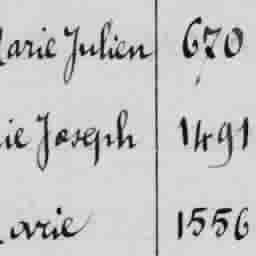 Marie Julien 670
ie Joseph 1491
Marie 1556